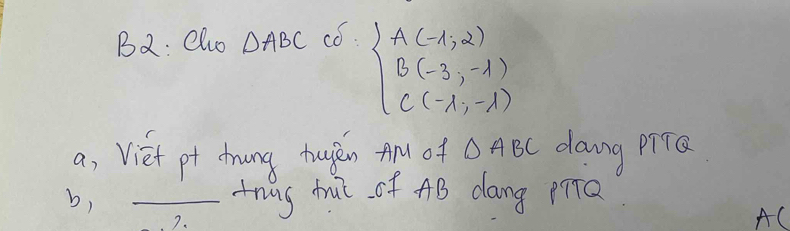 B2: Cho ΔABC có: { A (-1; 2)
B (-3; -1)
C (-1; -1)
a, Viết pt trung tuyến AM of Δ ABC dạng PTTQ.
b, ______ trung trực of AB dạng PTTQ.
AC